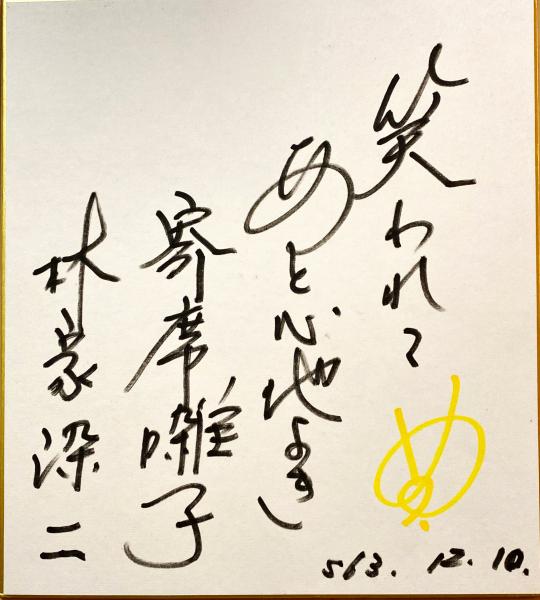 笑われて
あと心地よき
寄席囃子
林家染二
S63. 12. 10.